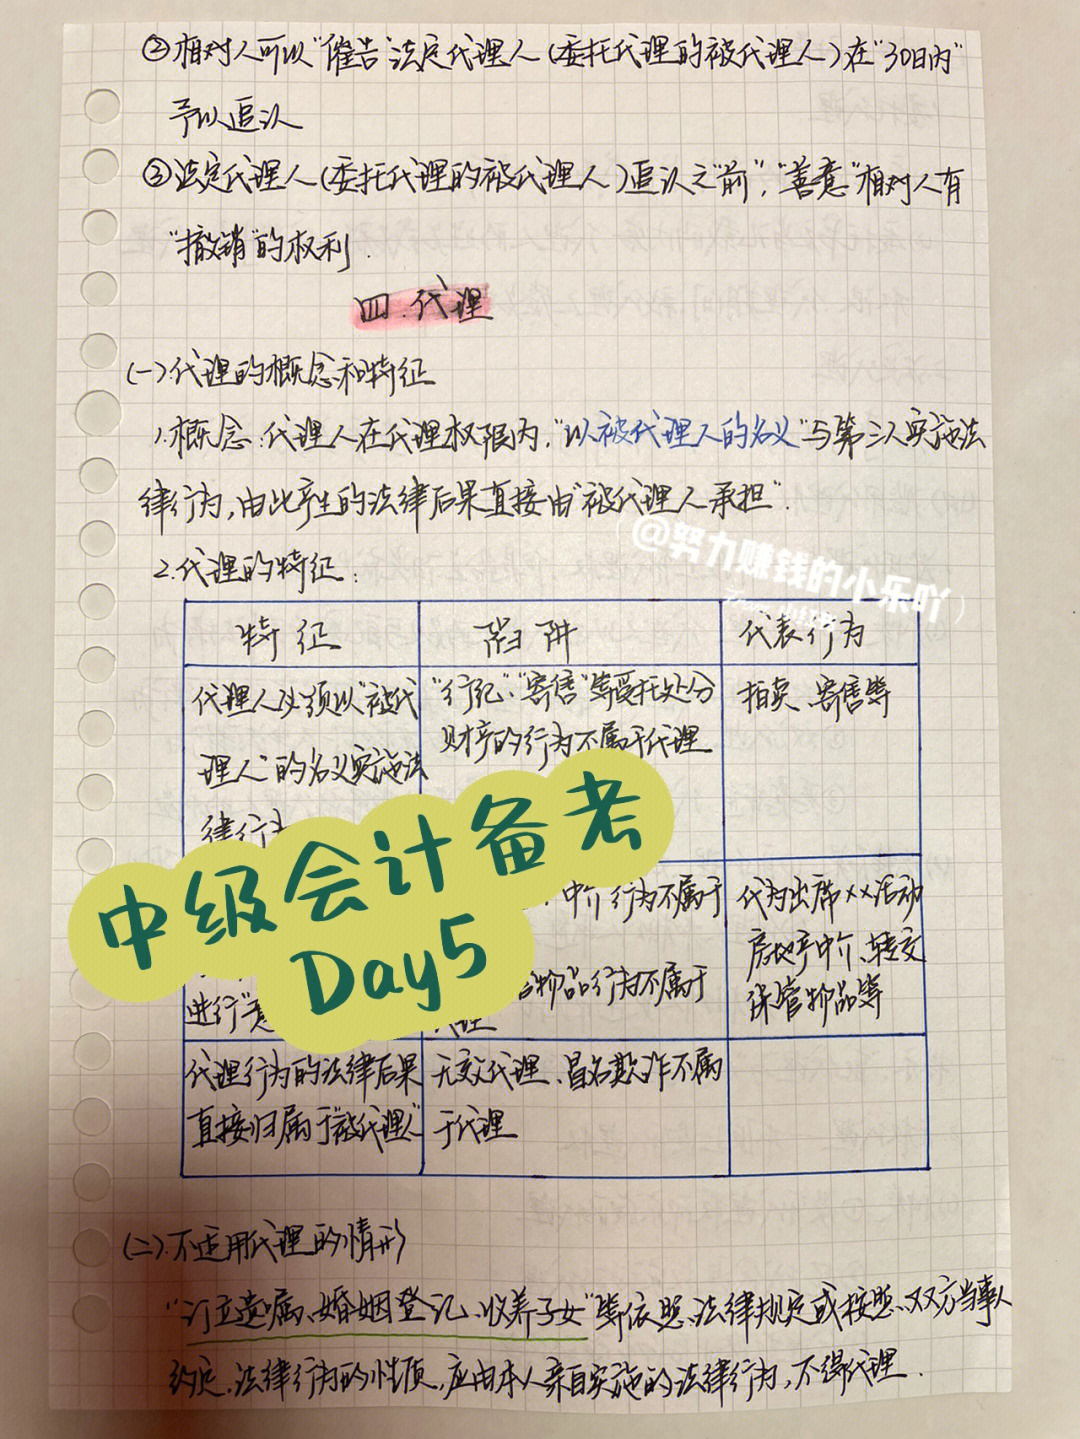 ②相对人可以"催告"法定代理人(委托代理的被代理人)在"30日内"
予以追认
③法定代理人(委托代理的被代理人)追认之"前","善意"相对人有
"撤销"的权利.
四.代理
(一).代理的概念和特征
1.概念:代理人在代理权限内,"以被代理人的名义"与第三人实施法
律行为,由此产生的法律后果直接由"被代理人承担".
@努力赚钱的小乐吖
2.代理的特征:
特征 陷阱 代表行为
代理人必须以"被代 "行纪"、"寄售"等受托处分 拍卖、寄售等
理人"的名义实施法 财产的行为不属于代理
律行
中级会计备考
Day5
中介行为不属于 代为出席××活动
房地产中介、转交
进行"意 物品行为不属于 保管物品等
代理
代理行为的法律后果 无效代理、冒名欺诈不属
直接归属于"被代理人" 于代理
(二).不适用代理的情形
"订立遗嘱、婚姻登记、收养子女"等依照法律规定或按照双方当事人
约定,法律行为的性质,应由本人亲自实施的法律行为,不得代理.